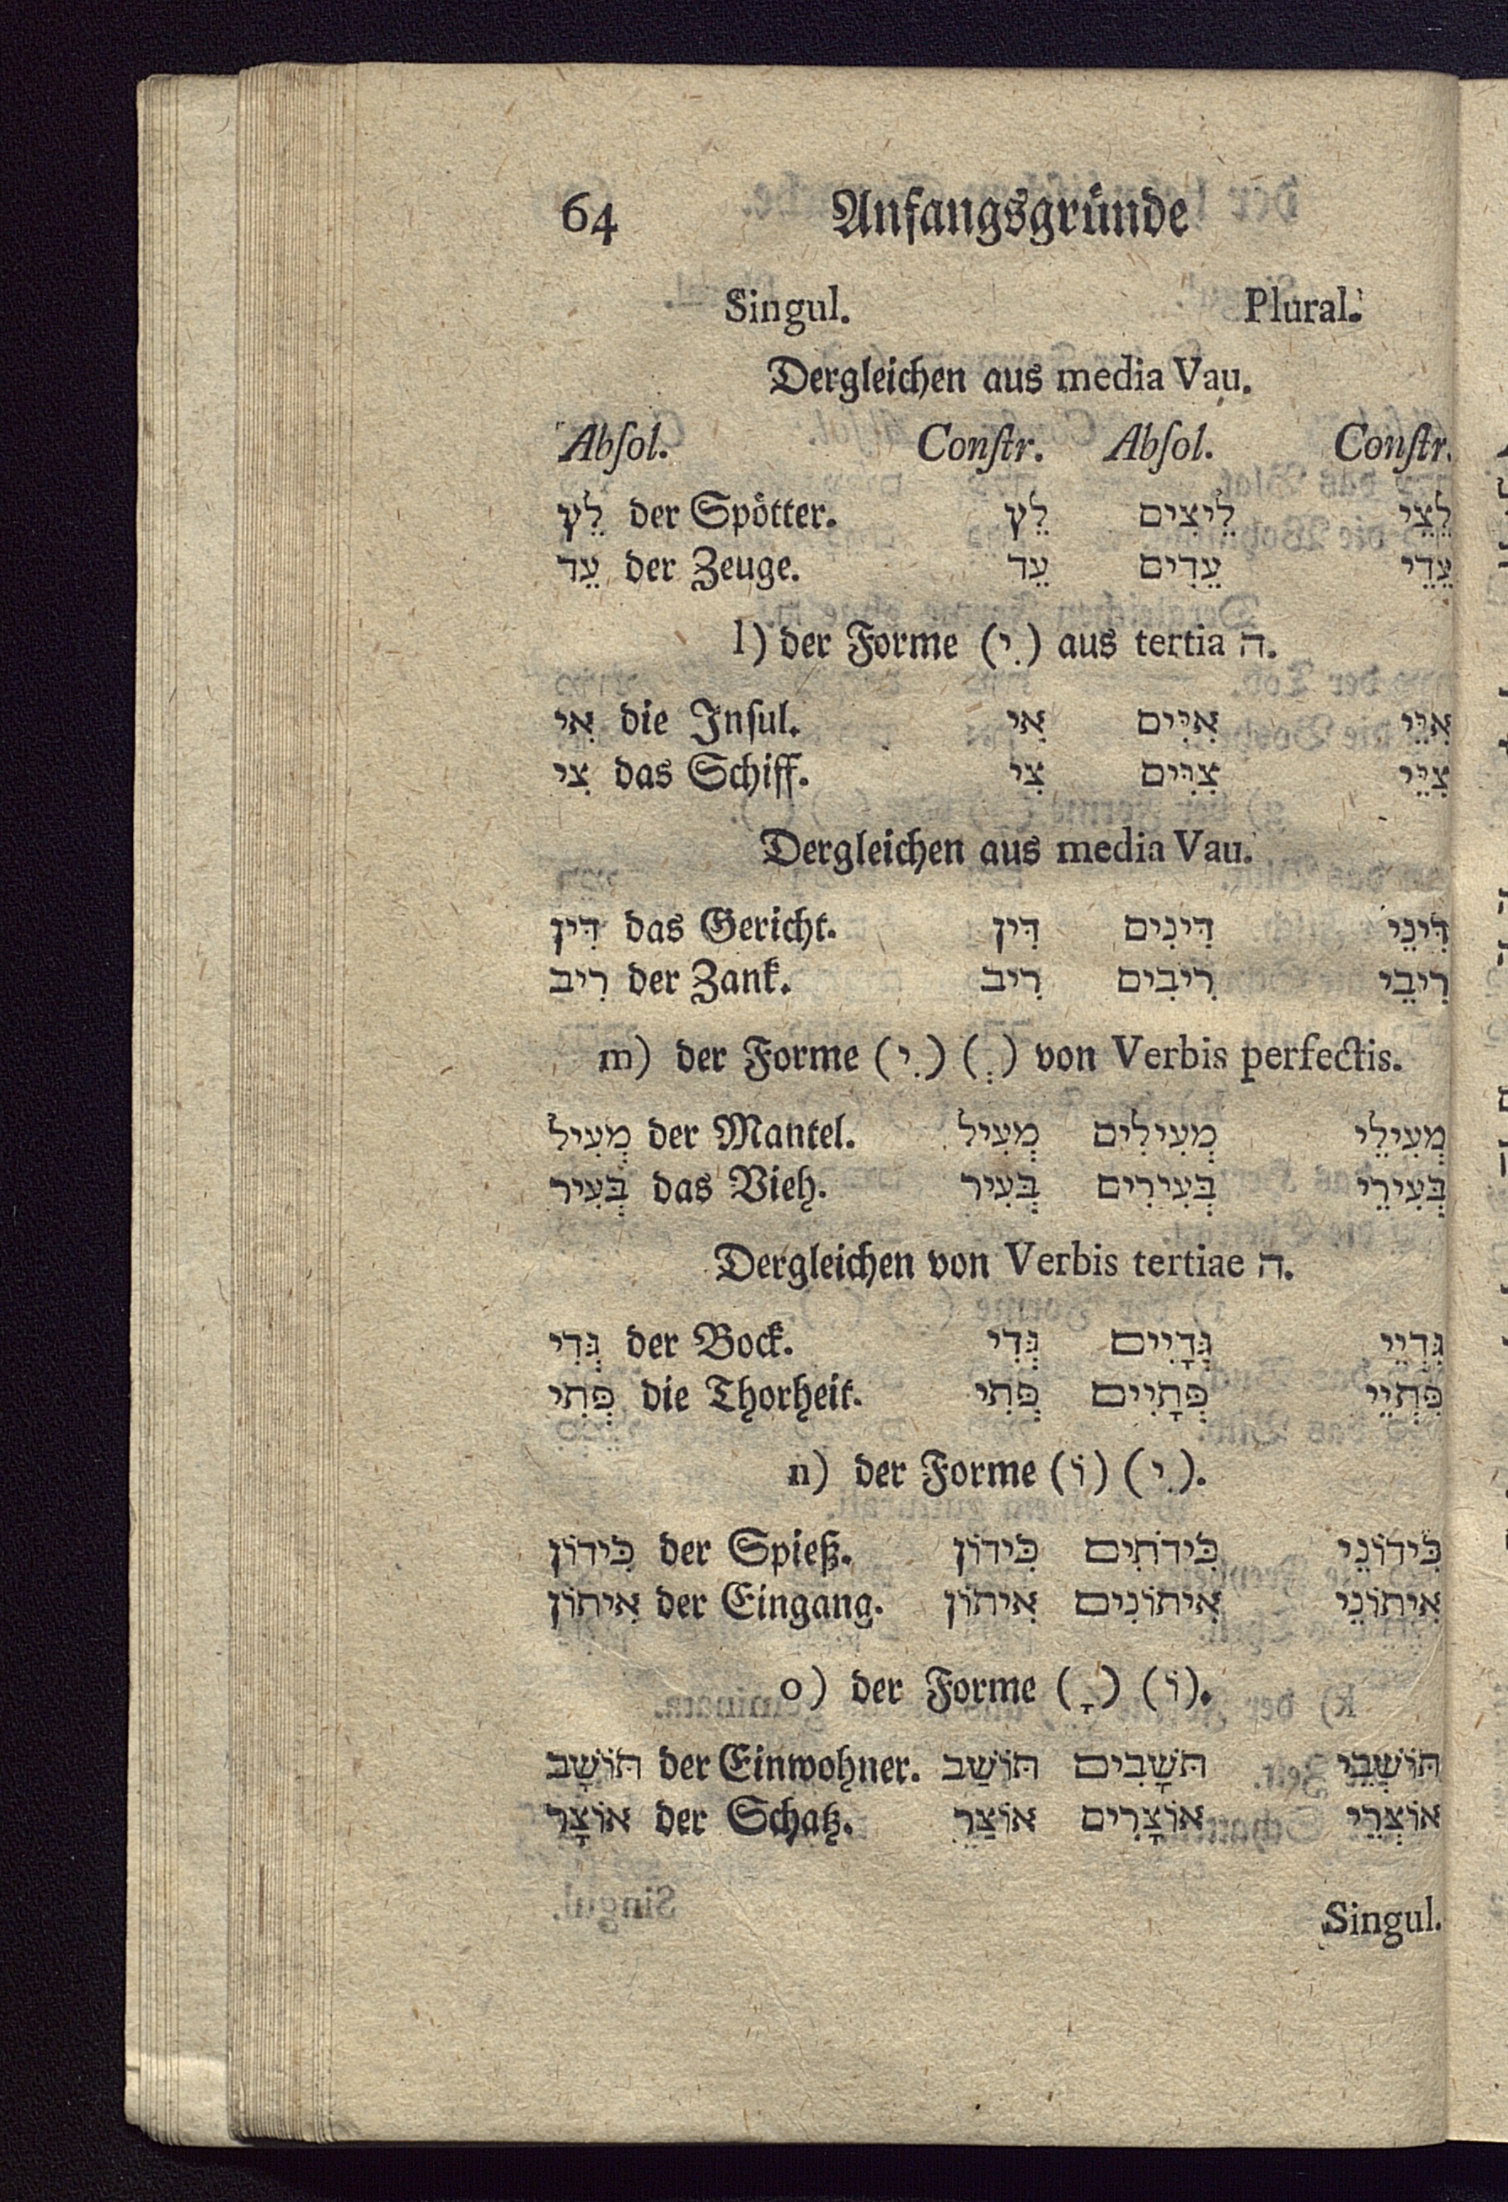 64 Anfangsgründe
Singul. Plural.
Dergleichen aus media Vau.
Abſol. Conſtr. Abſol. Conſtr.
לֵץ der Spötter. לֵץ לֵיצִים לֵצֵי
עֵד der Zeuge. עֵד עֵדִים עֵדֵי
l) der Forme (יִ) aus tertia ה.
אִי die Inſul. אִי אִיִּים אִיֵּי
צִי das Schiff. צִי צִיִּים צִיֵּי
Dergleichen aus media Vau.
דִּין das Gericht. דִּין דִּינִים דִּינֵי
רִיב der Zank. רִיב רִיבִים רִיבֵי
m) der Forme (יִ) (ְ) von Verbis perfectis.
מְעִיל der Mantel. מְעִיל מְעִילִים מְעִילֵי
בְּעִיר das Vieh. בְּעִיר בְּעִירִים בְּעִירֵי
Dergleichen von Verbis tertiae ה.
גְּדִי der Bock. גְּדִי גְּדָיִים גִּדְיֵי
פְּתִי die Thorheit. פְּתִי פְּתָיִים פִּתְיֵי
n) der Forme (וֹ) (יִ).
כִּידוֹן der Spieß. כִּידוֹן כִּידֹתִים כִּידוֹנֵי
אִיתוֹן der Eingang. אִיתוֹן אִיתוֹנִים אִיתוֹנֵי
o) der Forme (ָ) (וֹ).
תּוֹשָׁב der Einwohner. תּוֹשַׁב תּשָׁבִים תּוֹשְׁבֵי
אוֹצָר der Schatz. אוֹצַר אוֹצָרִים אוֹצְרֵי
Singul.